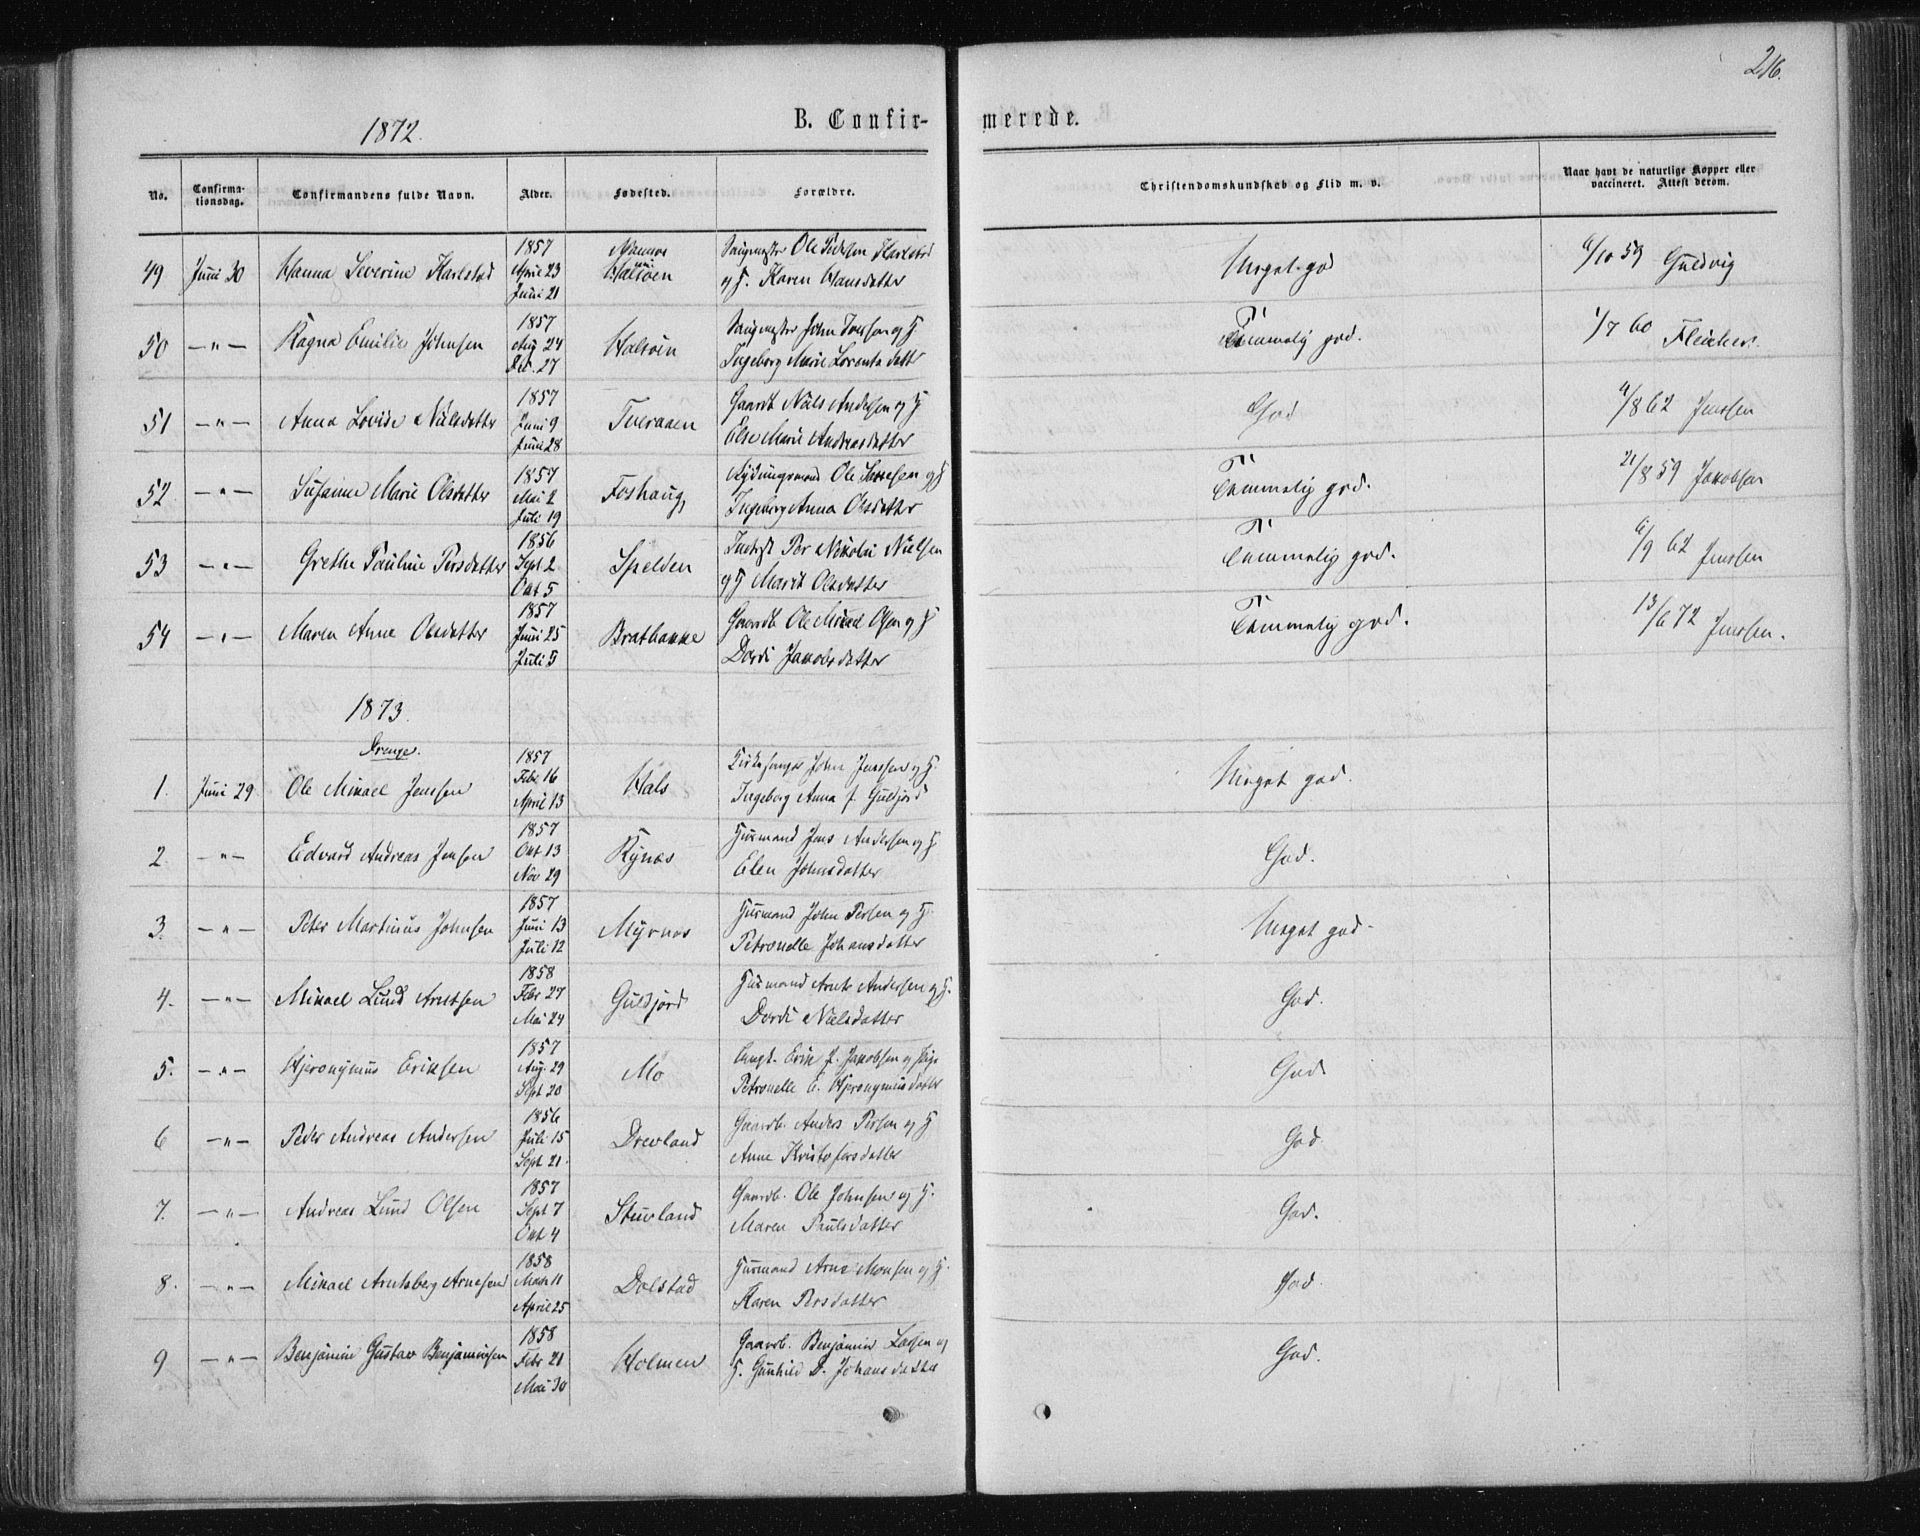 216.
1872.
B. Confir- merede.
No. Confirma-tionsdag. Confirmandens fulde Navn. Alder. Fødested. Forældre. Christendomskundskab og Flid m. v. Naar havt de naturlige Kopper eller vaccineret. Attest derom.
1857
49 Juni 30 Hanna Severine Karlstad April 23 Halsøen Ole Pedersen Karlstad Meget god 6/10 59 Guldvig
Juni 21 og H. Karen Hansdatter
1857 John Iversen og H
50 —"— Ragna Emilie Johnsen Aug 24 Halsøen Tammelig god. 1/7 60 Fleischer
Dec. 27 Ingeborg Marie Lorentsdatt
1857 Gaardb Niels Andersen og H
51 —"— Anna Lovise Nielsdatter Juni 9 Tveraaen God 4/8 62 Jenssen
Juni 28 Else Marie Andreasdatter
1857 Rydningsmand Ole Larsen og H
52 —"— Susanne Marie Olsdatter Mai 2 Foshaug Tammelig god. 21/8 59 Jakobsen
Juli 19 Ingeborg Anna Olsdatter
1856 Inderst Per Nikolai Nielsen
53 —"— Grethe Pauline Persdatter Sept 2 Spelden Tammelig god. 6/9 62 Jenssen
Okt 5 og H Marit Olsdatter
1857 Gaardb Ole Mikael Olsen og H
54 —"— Maren Anne Olsdatter Juni 25 Bratbakke Tammelig god. 13/6 72 Jenssen.
Juli 5 Dordi Jakobsdatter
1873.
Drenge.
1857 Kirkesanger John Jenssen og H.
1. Juni 29 Ole Mikael Jenssen Febr 16 Hals Meget god.
April 13 Ingeborg Anna f. Guldjord
1857 Husmand Jens Andersen og H
2 —"— Edvard Andreas Jensen Okt 13 Rynæs God.
Nov 29 Elen Johnsdatter
1857 Husmand John Persen og H.
3. —"— Peter Martinus Johnsen Juni 13 Myrnes Meget god.
Juli 12 Petronelle Johansdatter
1858 Husmand Arnt Andersen og H.
4. —"— Mikael Lund Arntsen Febr 27 Guldjord God.
Mai 24 Dordi Nielsdatter
1857 Ungk. Erik P. Jakobsen og Pige
5. —"— Hjeronymus Eriksen Aug. 29 Mo God
Sept 20 Petronelle E. Hjeronymusdatter
1856 Gaardb. Anders Persen og H
6 —"— Peder Andreas Andersen Juli 15 Drevland God
Sept 21 Anne Kristofersdatter
1857 Gaardb. Ole Johnsen og H.
7. —"— Andreas Lund Olsen Sept 7 Stuvland God.
Okt 4 Maren Paulsdatter
1858 Husmand Arne Monsen og H.
8. —"— Mikael Arntsberg Arnesen Marts 11 Dolstad God.
April 25 Karen Persdatter
1858 Gaardb. Benjamin Larsen og
9 —"— Benjamin Gustav Benjaminsen Febr 21 Holmen God.
Mai 30 H. Gunhild D. Johansdatter